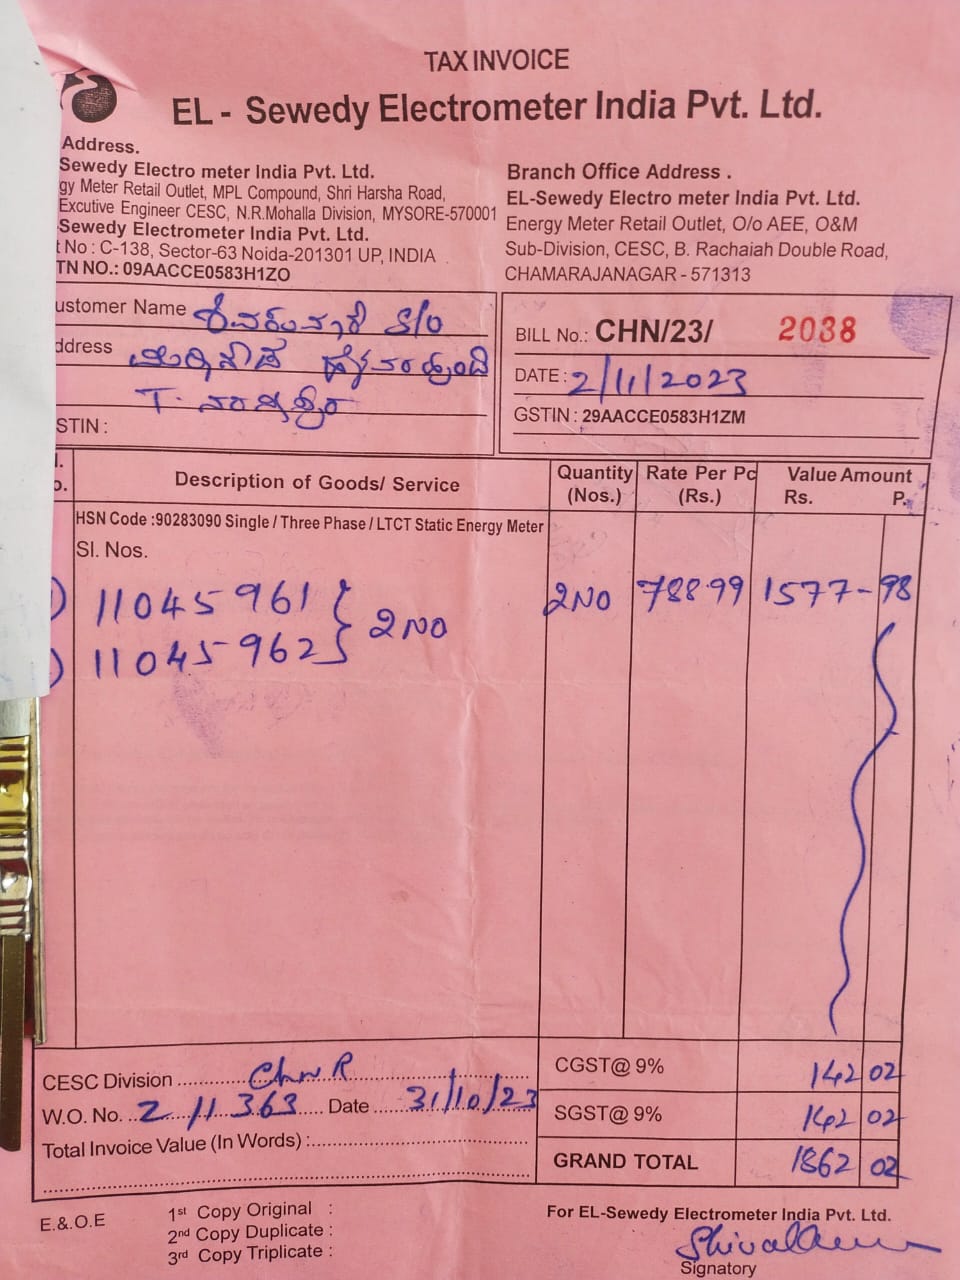 TAX INVOICE
EL - Sewedy Electrometer India Pvt. Ltd.
Address.
Sewedy Electro meter India Pvt. Ltd.
gy Meter Retail Outlet, MPL Compound, Shri Harsha Road,
Excutive Engineer CESC, N.R.Mohalla Division, MYSORE-570001
Sewedy Electrometer India Pvt. Ltd.
t No : C-138, Sector-63 Noida-201301 UP, INDIA
TN NO.: 09AACCE0583H1ZO
Branch Office Address .
EL-Sewedy Electro meter India Pvt. Ltd.
Energy Meter Retail Outlet, O/o AEE, O&M
Sub-Division, CESC, B. Rachaiah Double Road,
CHAMARAJANAGAR - 571313
ustomer Name S/O
ddress
T.
STIN :
BILL No.: CHN/23/ 2038
DATE : 2/11/2023
GSTIN : 29AACCE0583H1ZM
Description of Goods/ Service Quantity (Nos.) Rate Per Pc (Rs.) Value Amount Rs. P.
HSN Code :90283090 Single / Three Phase / LTCT Static Energy Meter
Sl. Nos.
11045961 2NO 2NO 788.99 1577-98
11045962
CESC Division CHNR CGST@ 9% 142 02
W.O. No. 211363 Date 31/10/23 SGST@ 9% 142 02
Total Invoice Value (In Words) : GRAND TOTAL 1862 02
E.&.O.E
1st Copy Original :
2nd Copy Duplicate :
3rd Copy Triplicate :
For EL-Sewedy Electrometer India Pvt. Ltd.
Signatory